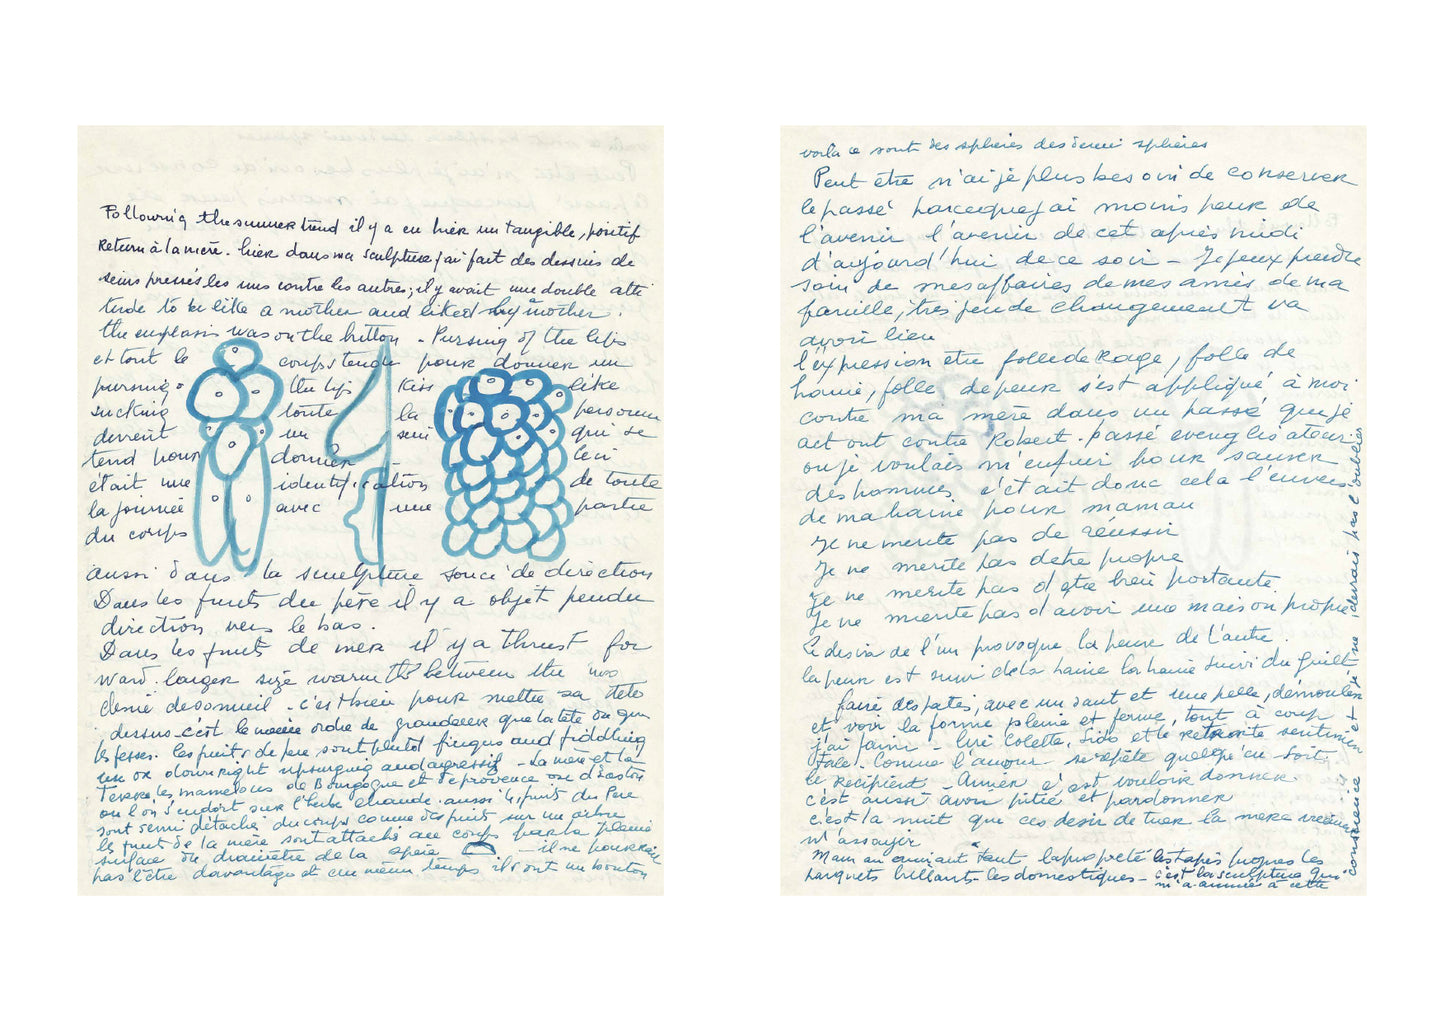 Following the summer trend il y a eu hier un tangible, positif
Return à la mère. hier dans ma sculpture j'ai fait des dessins de
seins pressés les uns contre les autres; il y avait une double atti
tude to be like a mother and liked by a mother.
the emphasis was on the button - Pursing of the lips
et tout le corps tendu pour donner un
pursing the lips kiss like
sucking toute la personne
devient un sein qui se
tend pour donner - ceci
était une identification de toute
la journée avec une partie
du corps
aussi dans la sculpture souci de direction
Dans les fruits du père il y a objet pendu
direction vers le bas.
Dans les fruits de mer il y a thrust for
ward. larger size warmth between the
de sommeil - c'est bien pour mettre sa tête
dessus - c'est le même ordre de grandeur que la tête ou que
les fesses. les fruits du père sont plutôt fingers and fiddling
use or downright upsurging and agressif - La mère et la
Terre les mamelons de Bourgogne et de provence ou d'Easton
ou l'on s'endort sur l'herbe chaude. aussi les fruits du Père
sont semi détachés du corps comme des fruits sur un arbre
les fruits de la mère sont attachés au corps par la pleine
surface du diamètre de la - il ne pourrait
pas l'être davantage et en même temps ils ont un bouton
voilà ce sont des sphères des demi sphères
Peut être n'ai je plus besoin de conserver
le passé parceque j'ai moins peur de
l'avenir l'avenir de cet après midi
d'aujourd'hui de ce soir - Je peux prendre
soin de mes affaires de mes amis de ma
famille, très peu de changement va
avoir lieu
l'expression être folle de Rage, folle de
haine, folle de peur s'est appliqué à moi
contre ma mère dans un passé que j'ai
act out contre Robert. passé
ou je voulais m'enfuir pour sauver
des hommes c'était donc cela l'envers
de ma haine pour maman
Je ne merite pas de réussir
Je ne merite pas detre propre
Je ne merite pas d'etre bien portante
Je ne merite pas d'avoir une maison propre
Le desir de l'un provoque la peur de l'autre.
la peur est suivi de la haine la haine suivi du guilt
faire des pates, avec un saut et une pelle, démouler
et voir la forme pleine et ferme, tout à coup
j'ai faim - lire Colette, Sido et le
Comme l'amour se repète quelqu'en soit
le Recipient - Aimer c'est vouloir donner
c'est aussi avoir pitié et pardonner
c'est la nuit que ces desir de tuer la mere
m'assayir
Mam an aimait tant la propreté les tapis propres les
parquets brillants - les domestiques - c'est la sculpture qui
m'a amenée à cette
conscience et je ne devrais pas l'oublier